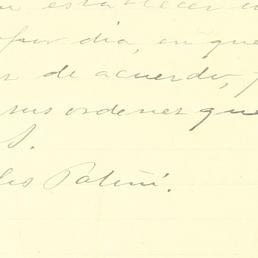 establecer
por dia, en que
de acuerdo,
sus ordenes que
S.
Patiñi.